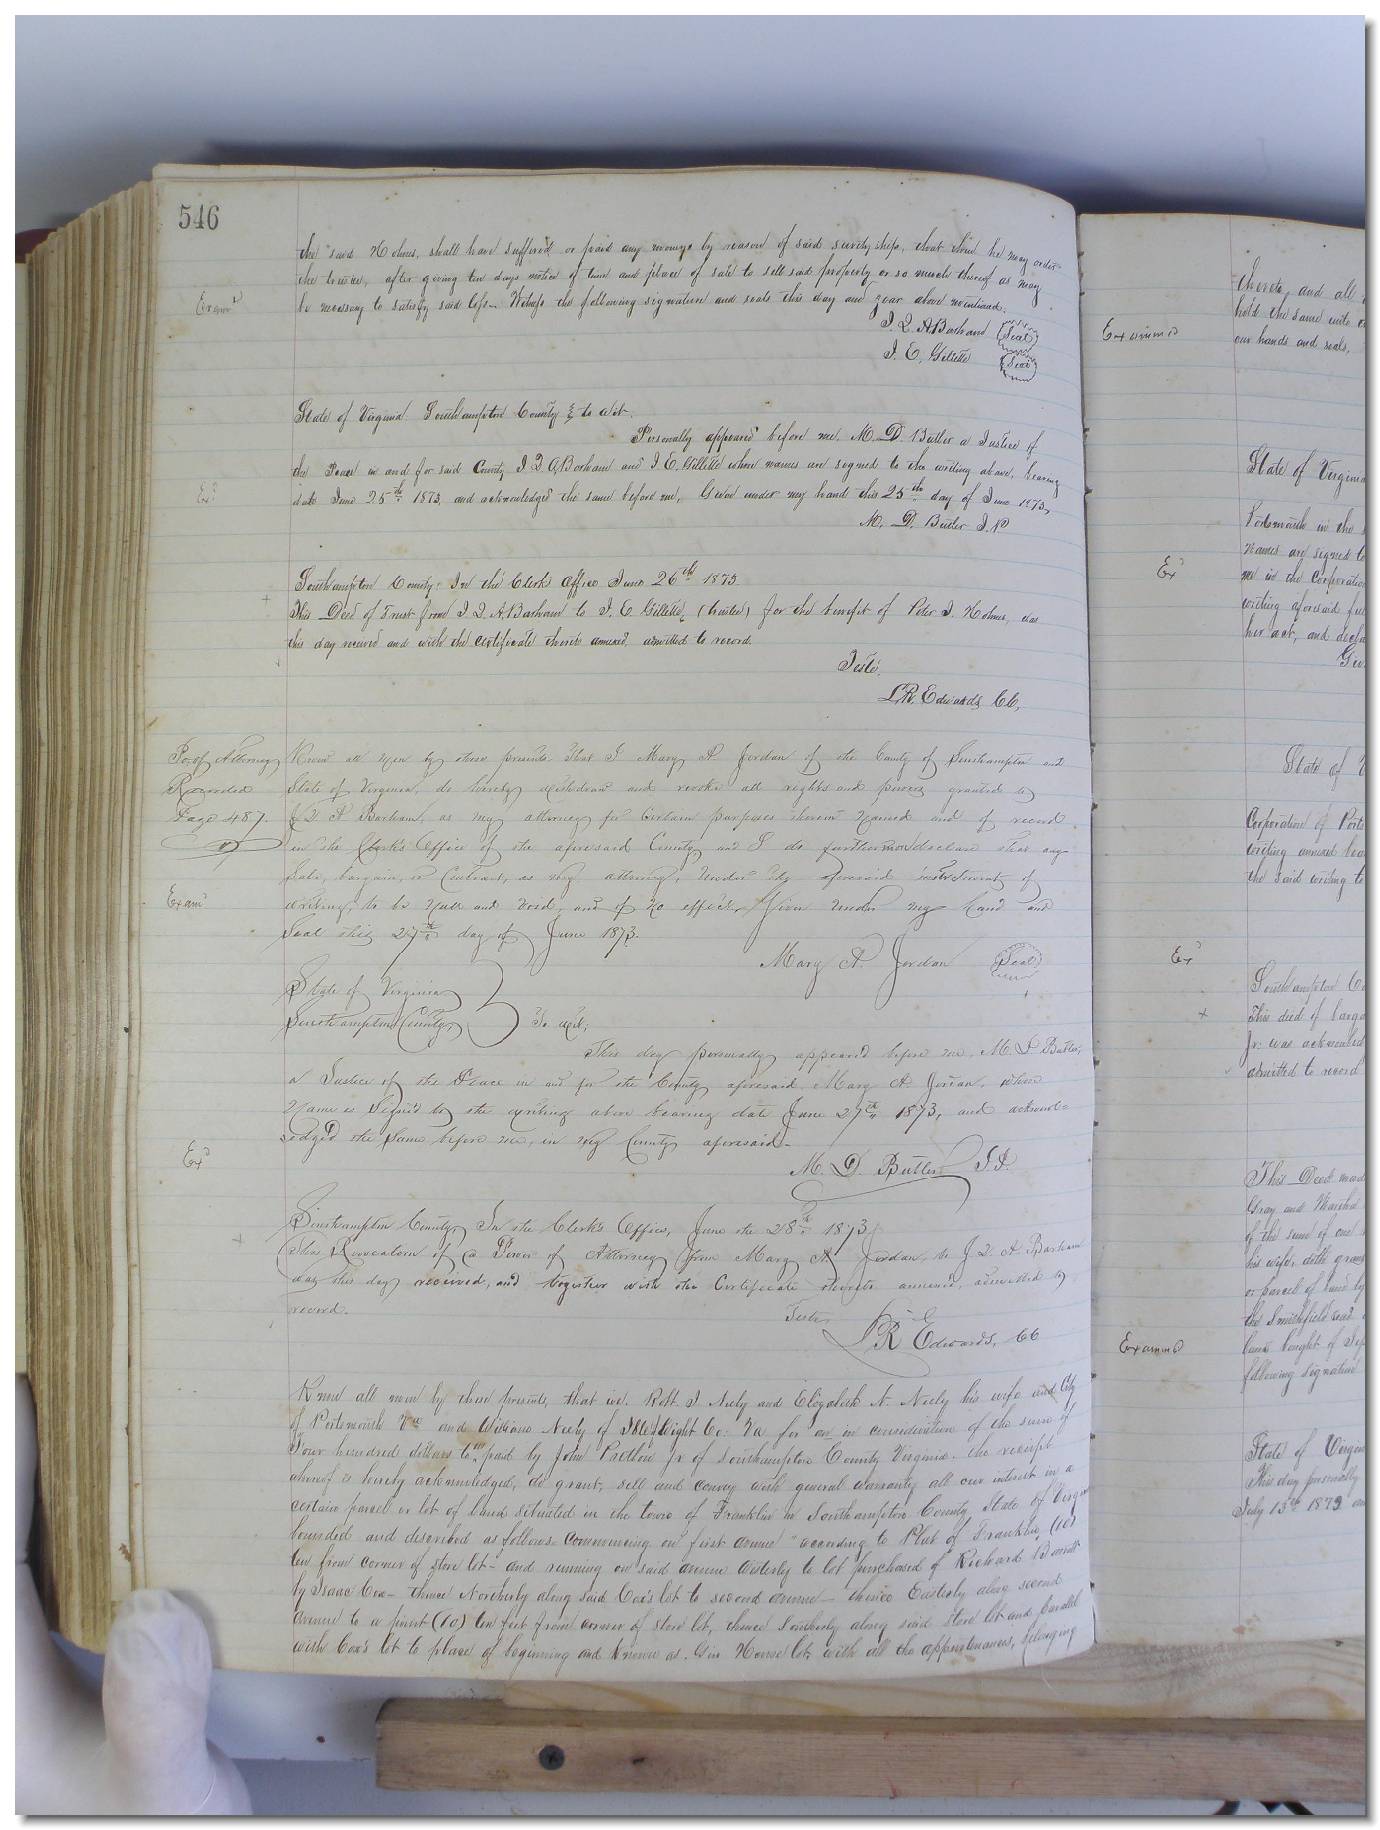 546
the said Holmes, shall have suffered or paid any moneys by reason of said surityship, that then he may order
the trustee, after giving ten days notice of time and place of sale to sell said property or so much thereof as may
be necessary to satisfy said loss. Witness the following signature and seals this day and year above mentioned.
J. Q. A. Barham Seal
J. E. Gillette Seal
State of Virginia. Southampton County to wit.
Personally appeared before me, M. D. Butler a Justice of
the Peace in and for said County J Q A Barham and J. E. Gillette whose names are signed to the writing above, bearing
date June 25th 1873, and acknowledged the same before me, Given under my hand this 25th day of June 1873,
M. D. Butler J. P.
Exd
Southampton County: In the Clerk's Office June 26th 1873
This Deed of Trust from J. Q. A. Barham to J. E. Gillette, (trustee) for the benefit of Peter J. Holmes, was
this day received and with the certificate thereto annexed, admitted to record.
Teste.
L. R. Edwards CC,
Po. of Attorney
Recorded
Page 487.
Know all men by these presents That I Mary A Jordan of the County of Southampton and
State of Virginia, do hereby withdraw and revoke all rights and powers granted to
J Q A Barham, as my attorney for certain purposes therein named and of record
in the Clerk's Office of the aforesaid County, and I do furthermore declare that any
Sale, bargain, or Contract, as my attorney, under the aforesaid instrument of
writing, to be Null and Void, and of no effect. Given under my hand and
Seal this 27th day of June 1873.
Mary A. Jordan Seal
Examd
State of Virginia
Southampton County To wit;
This day personally appeared before me, M. D Butler,
a Justice of the Peace in and for the County aforesaid Mary A Jordan, whose
Name is Signed to the writing above bearing date June 27th 1873, and acknowl=
edged the Same before me, in my County aforesaid.
M. D. Butler J. P.
Exd
Southampton County, In the Clerk's Office, June the 28th 1873
This Revocation of a Power of Attorney from Mary A Jordan to J. Q. A Barham
was this day received, and together with the Certificate thereto annexed, admitted to
record.
Teste,
L R Edwards, CC
Know all men by these presents, that we. Robt. J Neely and Elizabeth A. Neely his wife and City
of Portsmouth Va and William Neely of Isle Wight Co: Va for an in consideration of the sum of
Four hundred dollars to paid by John Pretlow Jr of Southampton County Virginia. the receipt
whereof is hereby acknowledged, do grant, sell and convey with general warranty all our interest in a
certain parcel or lot of land situated in the town of Franklin in Southampton County State of Virginia
bounded and described as follows. Commencing on "first avenue" according to Plat of Franklin (10)
ten from corner of store lot- and running on said avenue westerly to lot purchased of Richard Barrett
by Isaac Cox- thence Northerly along said Cox's lot to second avenue- thence Easterly along second
avenue to a point (10) ten feet from corner of store lot, thence Southerly along said store lot and parallel
with Cox's lot to place of beginning and known as. Gin House lot, with all the appurtenances, belonging
thereto, and all
hold the same unto
our hands and seals,
Examined
State of Virginia
Portsmouth in the
names are signed to
me in the Corporation
writing aforesaid
her act, and
Exd
State of
Corporation of Ports
writing annexed
the said writing
Exd
Southampton Co
This deed of barga
Jr. was acknowled
admitted to record
This Deed mad
Gray and
of the sum of one
his wife, doth gran
or parcel of land
the Smithfield road
land bought of
following signature
Examined
State of Virgin
This day personally
July 13th 1873